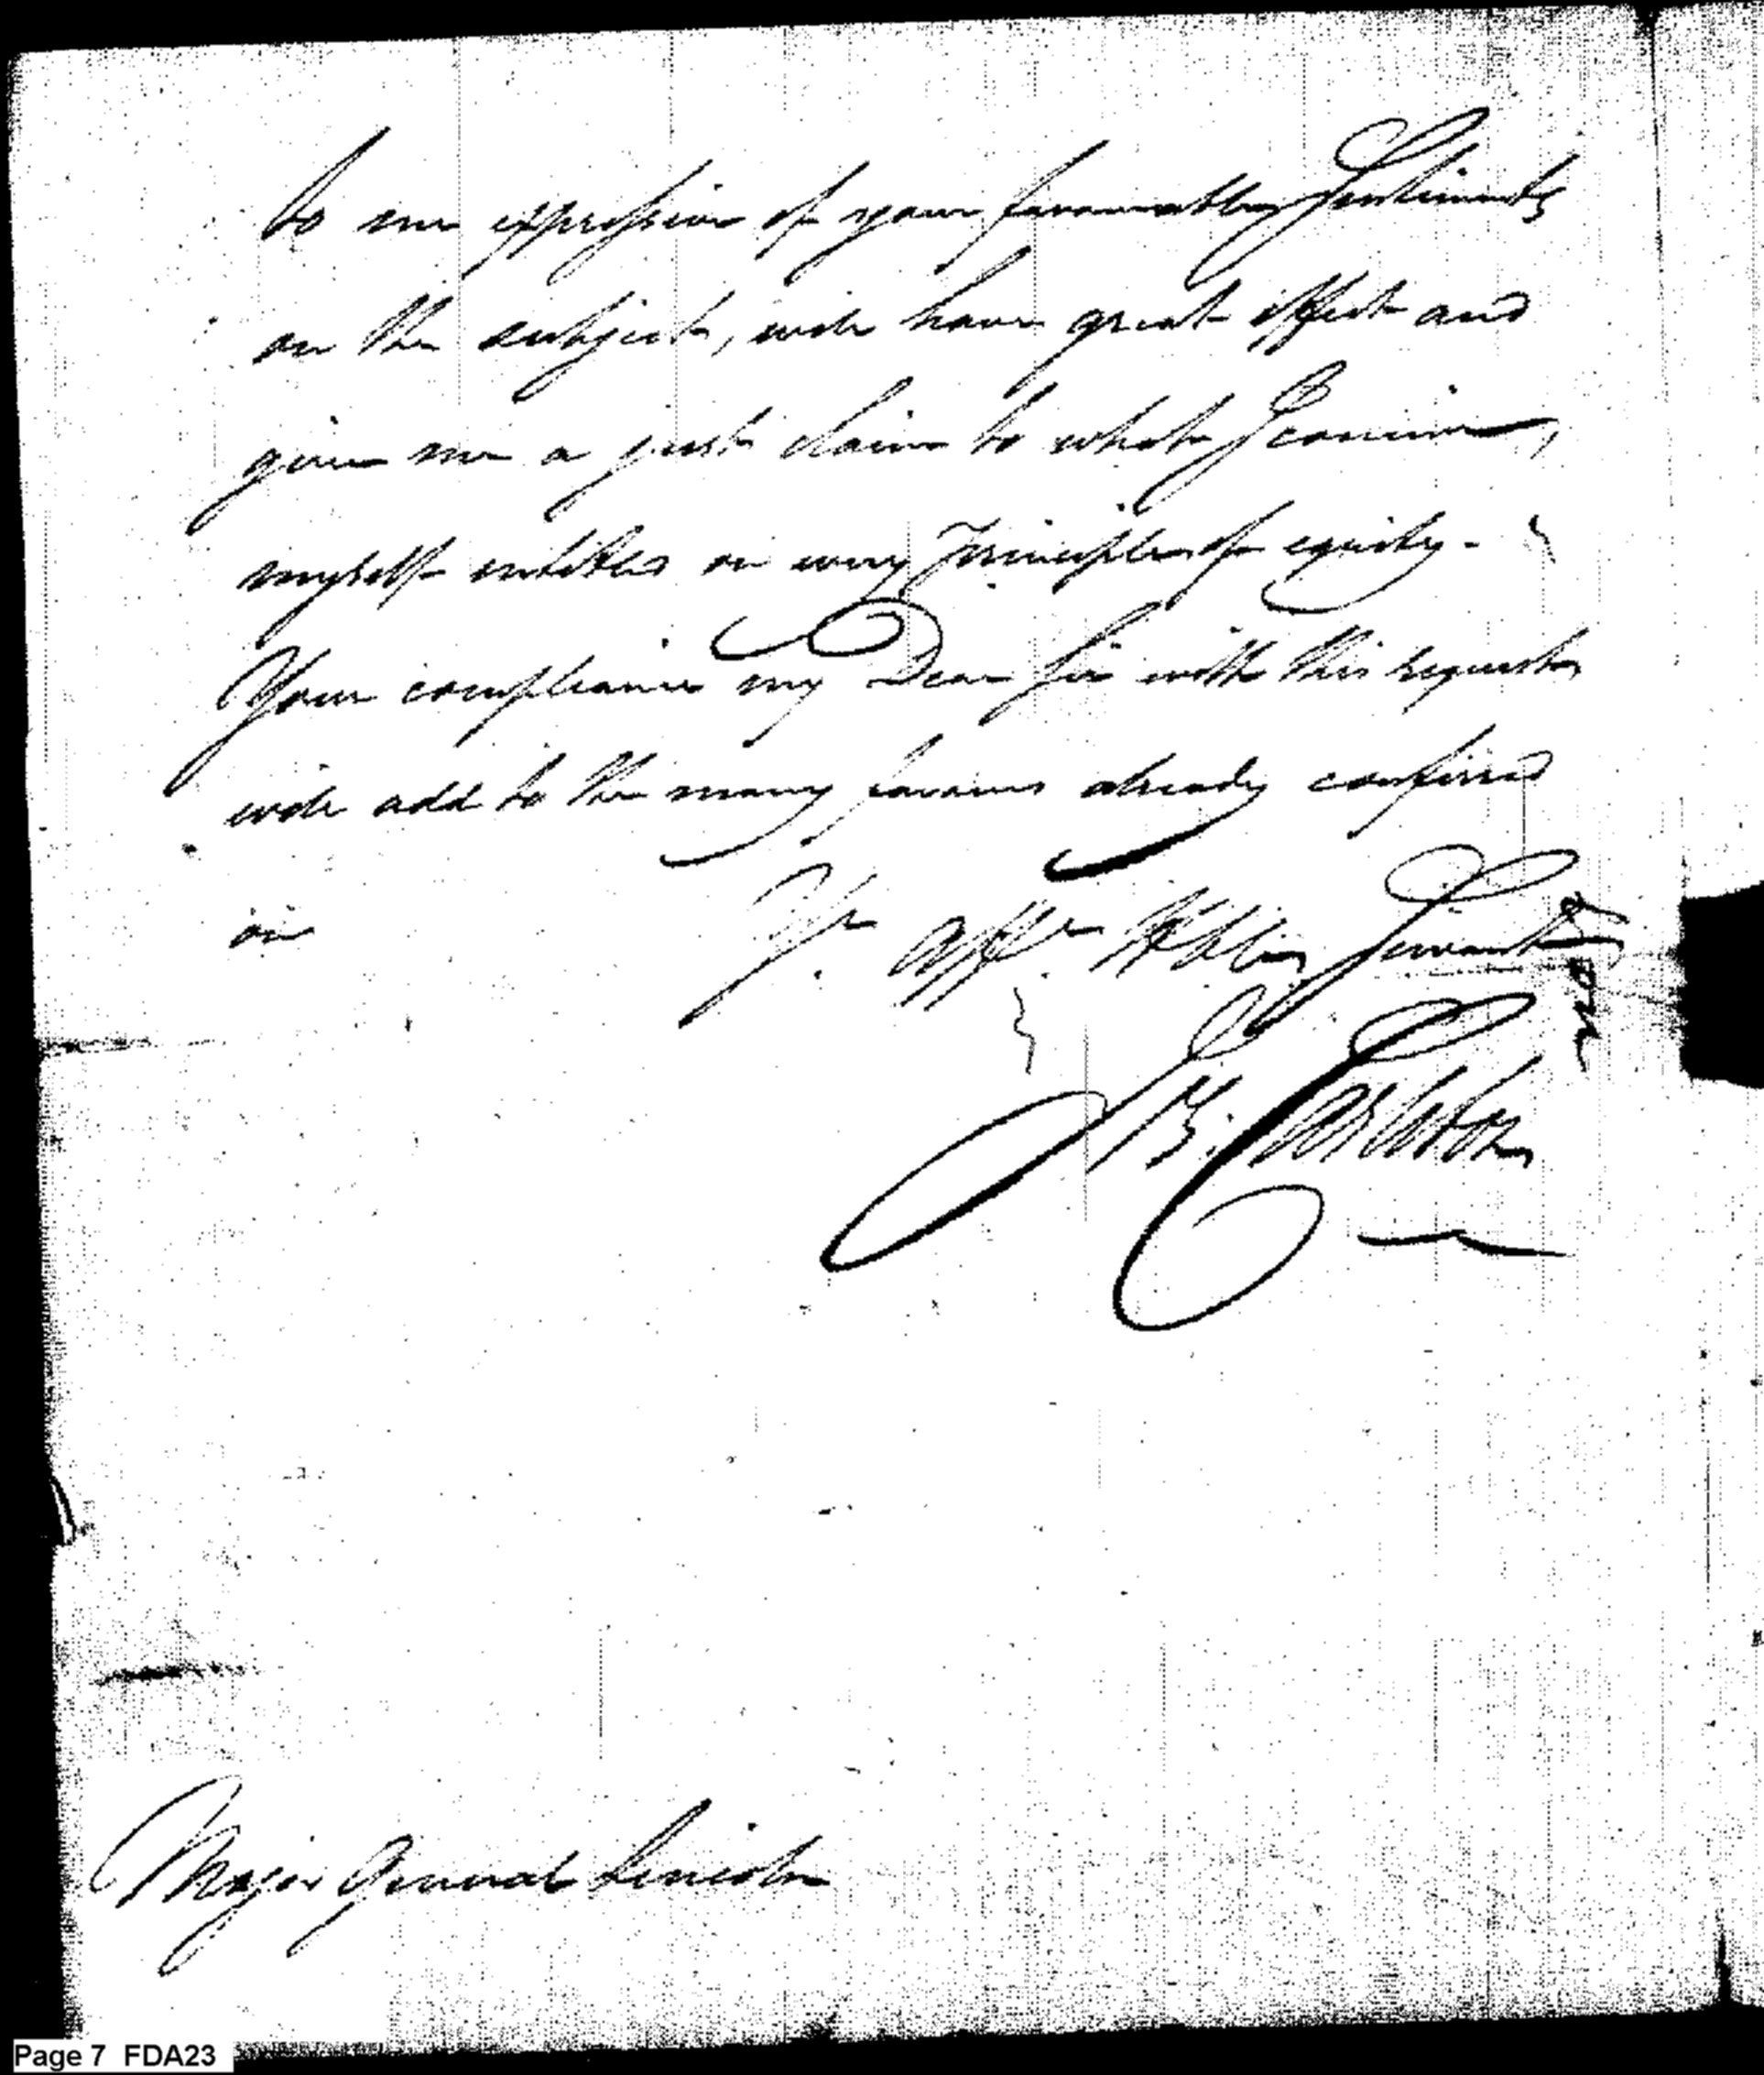 to me expressive of your favourable Sentiments
on the subject, will have great effect and
give me a just claim to what I conceive,
myself entitled on every Principle of equity -
Your compliance my Dear Sir with this request
will add to the many favours already conferred
on
Yr Affte Hble Servant
J B.
Major General Lincoln
Page 7 FDA23